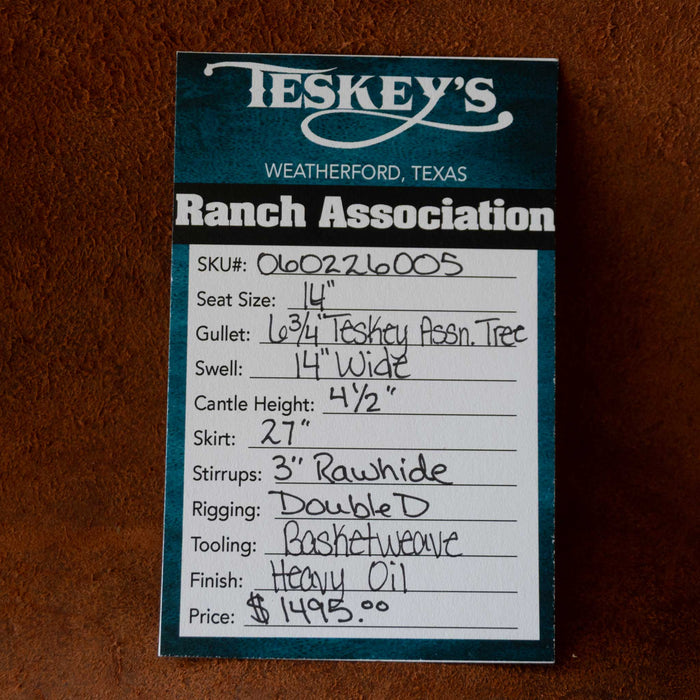 TESKEY'S
WEATHERFORD, TEXAS
Ranch Association
SKU#: 060226005
Seat Size: 14"
Gullet: 6 3/4" Teskey Assn. Tree
Swell: 14" Wide
Cantle Height: 4 1/2"
Skirt: 27"
Stirrups: 3" Rawhide
Rigging: Double D
Tooling: Basketweave
Finish: Heavy Oil
Price: $1495.00